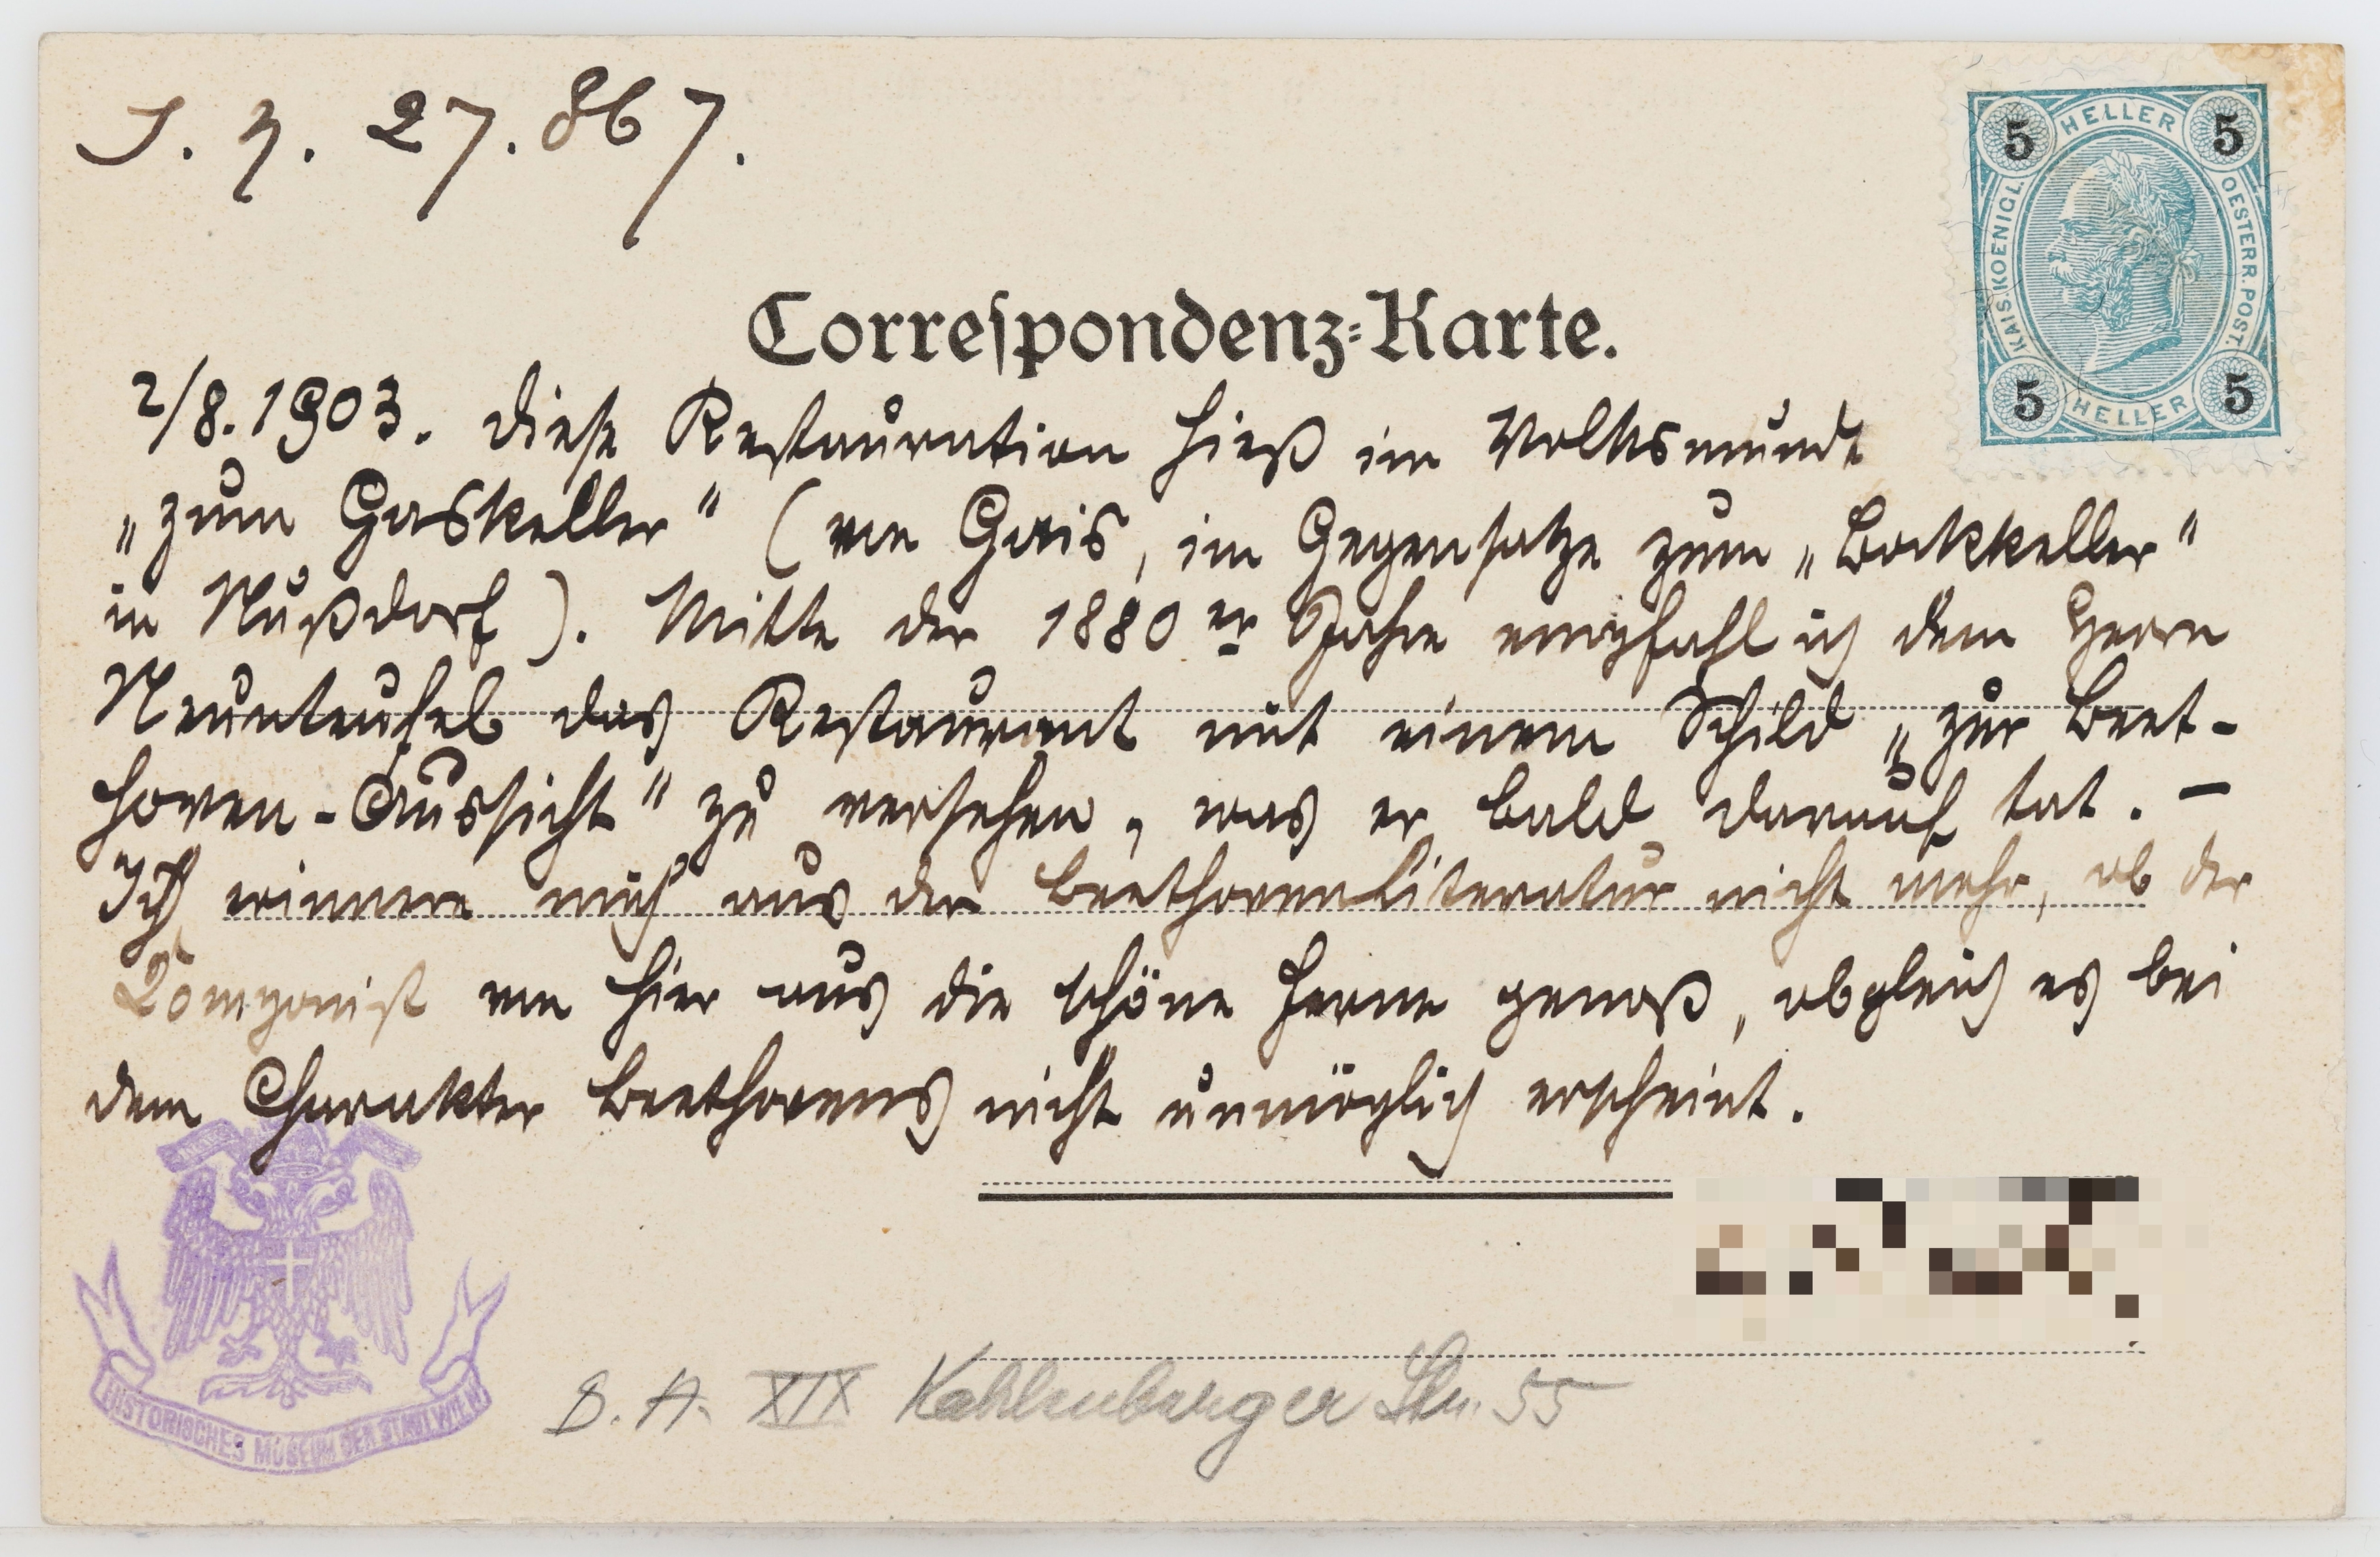 J. Z. 27.867.
5 HELLER 5
KAIS. KOENIGL. OESTERR. POST
5 HELLER 5
Correſpondenz-Karte.
2/8. 1903. Diese Restauration hieß im Volksmunde
„zum Gaskeller“ (von Gais, im Gegensatze zum „Bockkeller“
in Nußdorf). Mitte der 1880er Jahre empfahl ich dem Herrn
Neunteufel das Restaurant mit einem Schild „zur Beet-
hoven-Aussicht“ zu versehen, was er bald darauf tat. –
Ich erinnere mich aus der Beethovenliteratur nicht mehr, ob der
Komponist von hier aus die schöne Ferne genoß, obgleich es bei
dem Charakter Beethovens nicht unmöglich erscheint.
HISTORISCHES MUSEUM DER STADT WIEN
B. A. XIX Kahlenberger Str. 55